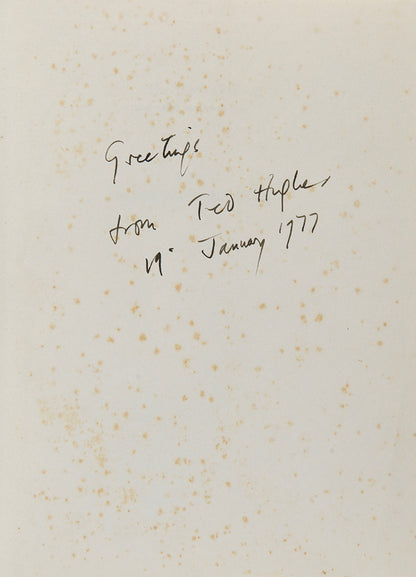 Greetings
from Ted Hughes
19. January 1977